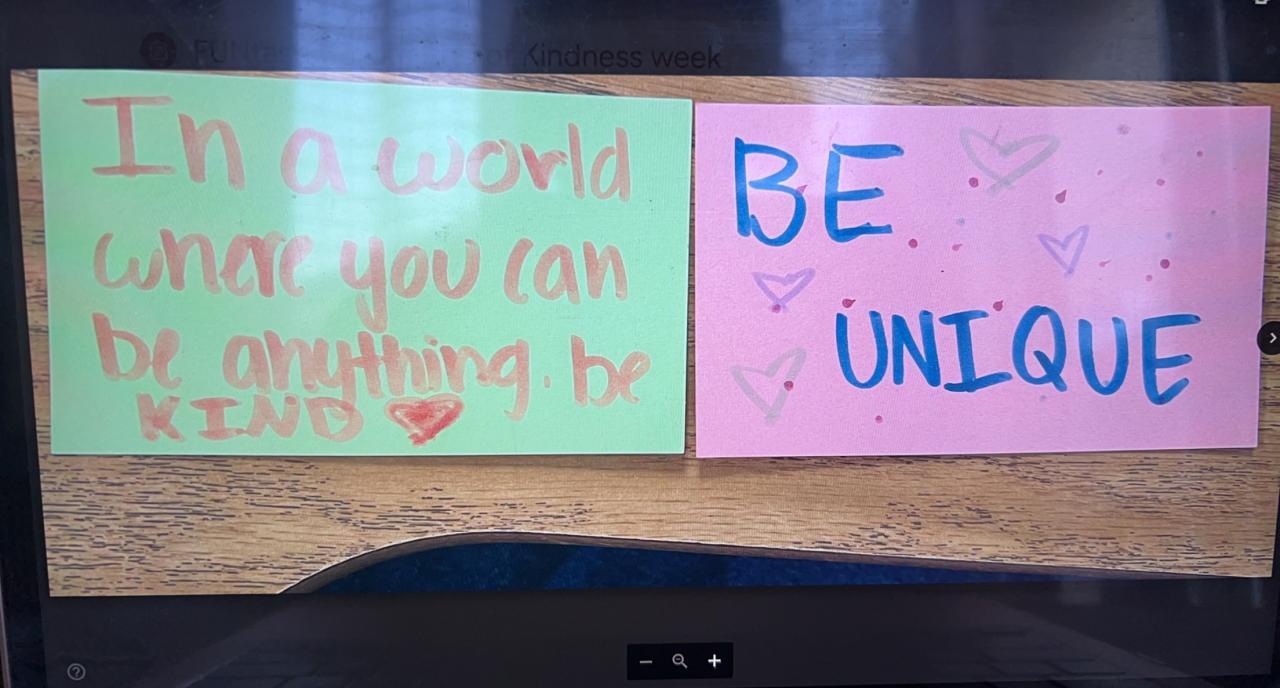 Kindness week
In a world
where you can
be anything. be
KIND
BE
UNIQUE